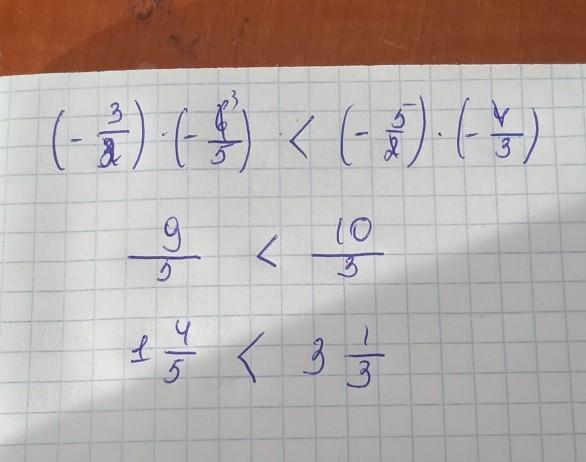 (- 3/2) · (- 6/5) < (- 5/2) · (- 4/3)
9/5 < 10/3
1 4/5 < 3 1/3